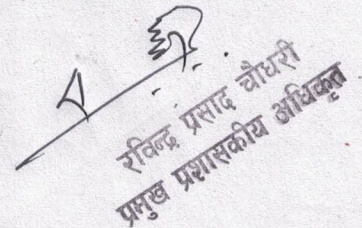 रविन्द्र प्रसाद चौधरी
प्रमुख प्रशासकीय अधिकृत